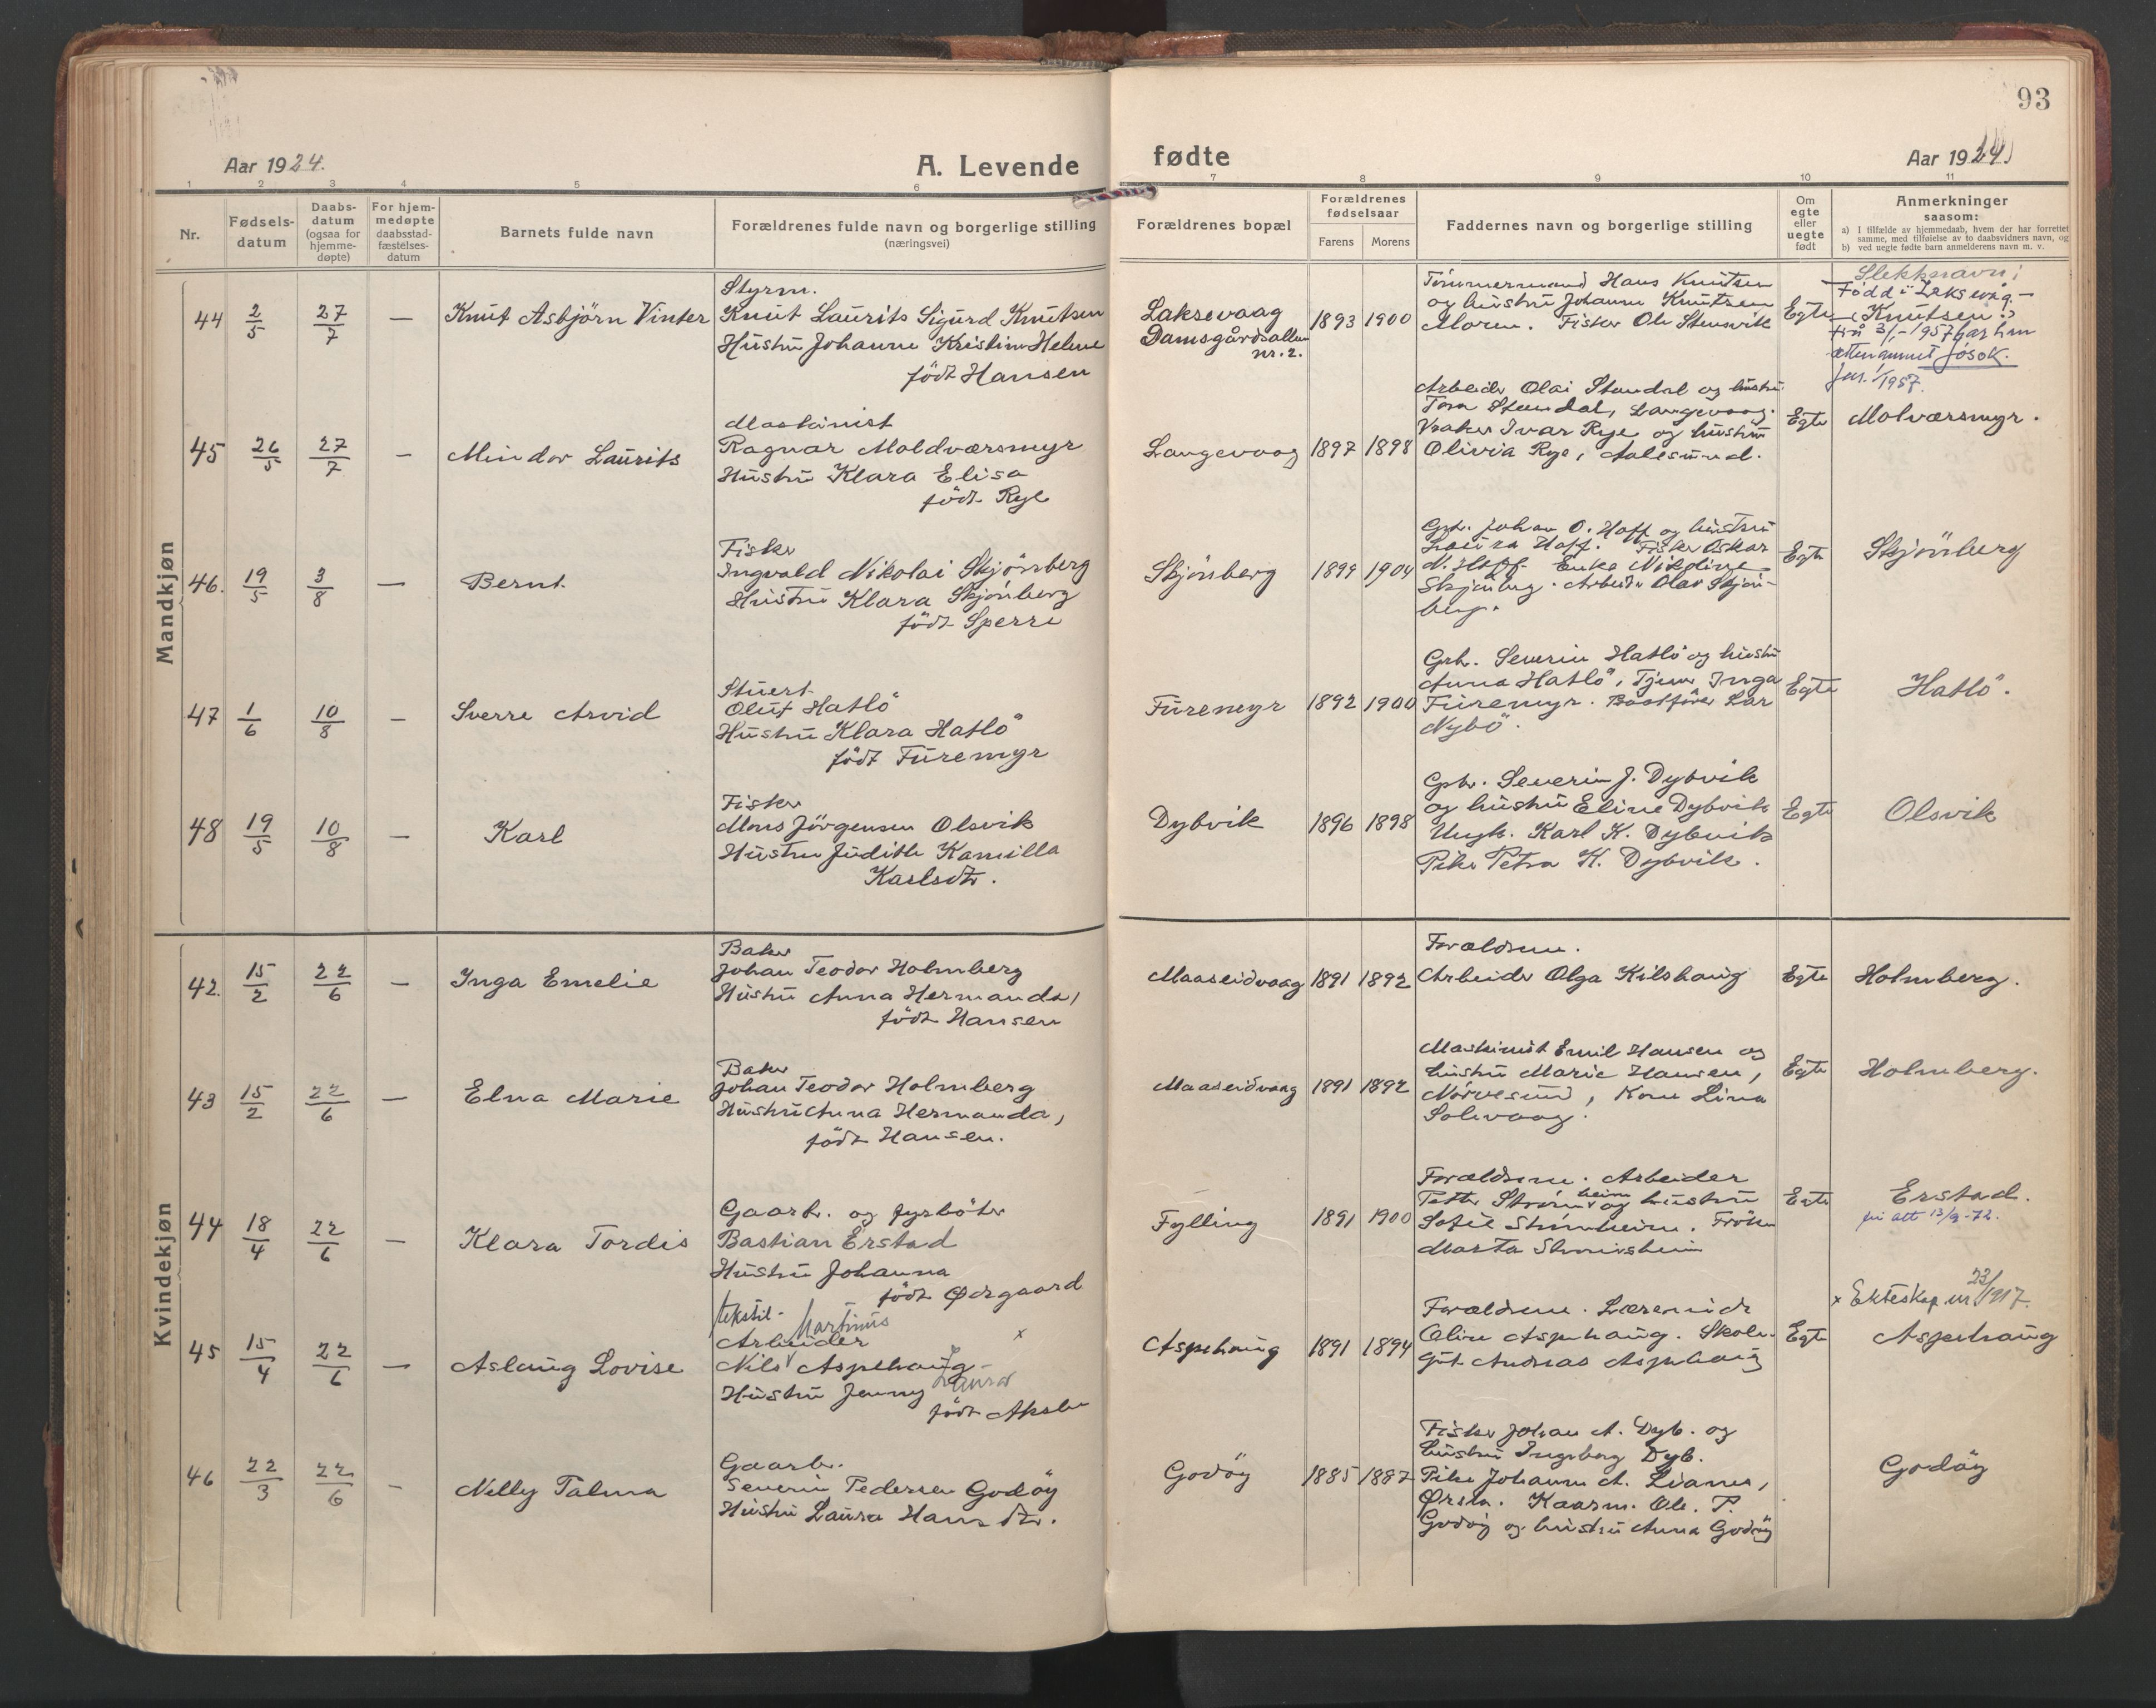 93
Aar 1924.
A. Levende
fødte
Aar 1924
1 2 3 4 5 6 7 8 9 10 11
Nr.
Fødsels-
datum
Daabs-
datum
(ogsaa for
hjemme-
døpte)
For hjem-
medøpte
daabsstad-
fæstelses-
datum
Barnets fulde navn
Forældrenes fulde navn og borgerlige stilling
(næringsvei)
Forældrenes bopæl
Forældrenes
fødselsaar
Farens Morens
Faddernes navn og borgerlige stilling
Om
egte
eller
uegte
født
Anmerkninger
saasom:
a) I tilfælde av hjemmedaab, hvem der har forrettet
samme, med tilføielse av to daabsvidners navn, og
b) ved uegte fødte barn anmelderens navn m. v.
Mandkjøn
44 2/5 27/7 — Knut Asbjörn Vinter
Styrm.
Knut Laurits Sigurd Knutsen
Hustru Johanne Kristine Helene
födt Hansen
Laksevaag
Damsgårdsalleen
nr. 2.
1893 1900
Tömmermand Hans Knutsen
og hustru Johanne Knutsen
Moren. Fisker Ole Stensvik
Egte
Slektsnavn:
Født i Laksevåg -
Knutsen
frå 3/1-1957 har han
ættenamnet Jøsok.
1/1957.
45 26/5 27/7 — Mindor Laurits
Maskinist
Ragnar Moldværsmyr
Hustru Klara Elisa
födt Rye
Langevaag 1897 1898
Arbeider Olai Standal og hustru
Tora Standal, Langevaag.
Ivar Rye og hustru
Olivia Rye, Aalesund.
Egte Molværsmyr.
46. 19/5 3/8 — Bernt
Fisker
Ingvald Nikolai Skjönberg
Hustru Klara Skjönberg
födt Sperre
Skjönberg 1899 1904
Grbr. Johan O. Hoff og hustru
Laura Hoff. Fisker Oskar
N. Hoff. Enke Nikoline
Skjönberg. Arbeider Olav Skjön-
berg.
Egte Skjönberg
47 1/6 10/8 — Sverre Arvid
Stuert
Oluf Hatlö
Hustru Klara Hatlö
födt Furemyr
Furemyr 1892 1900
Grbr. Severin Hatlö og hustru
Anna Hatlö, Tjener Inga
Furemyr. Baatförer Lar
Nybö.
Egte Hatlö.
48 19/5 10/8 — Karl
Fisker
Mons Jörgensen Olsvik
Hustru Judith Kamilla
Karlsdtr.
Dybvik 1896 1898
Grbr. Severin J. Dybvik
og hustru Eline Dybvik
Ungk. Karl K. Dybvik
Pike Petra K. Dybvik.
Egte Olsvik
Kvindekjøn
42. 15/2 22/6 — Inga Emelie
Baker
Johan Teodor Holmberg
Hustru Anna Hermanda,
födt Hansen
Maaseidvaag 1891 1892
Forældrene.
Arbeider Olga Kilshaug
Egte Holmberg.
43 15/2 22/6 — Elna Marie
Baker
Johan Teodor Holmberg
Hustru Anna Hermanda,
födt Hansen.
Maaseidvaag 1891 1892
Maskinist Emil Hansen og
hustru Marie Hansen,
Nörvesund, Kone Lina
Solevaag.
Egte Holmberg.
44 18/4 22/6 — Klara Tordis
Gaarb. og fyrböter
Bastian Erstad
Hustru Johanna
födt Ødegaard
Fylling 1891 1900
Forældrene. Arbeider
Petter Strömsheim og hustru
Sofie Strömsheim. Fröken
Marta Strömsheim
Egte Erstad.
13/9-72.
45 15/4 22/6 — Aslaug Lovise
tekstil- Martinus
Arbeider x
Nils Aspehaug
Hustru Jenny Laura
födt Aksle
Aspehaug 1891 1894
Forældrene.
Oline Aspehaug. Skole-
gut Andreas Aspehaug
Egte
x Ekteskap nr 23/1917.
Aspehaug
46 22/3 22/6 - Nelly Talma
Gaarb.
Severin Pedersen Godöy
Hustru Laura Hansdtr.
Godöy 1885 1887
Fisker Johan A. Dyb. og
hustru Ingeborg Dyb.
Pike Johanne A. Lianes,
Ørsta. Kaarm. Ole. P.
Godöy og hustru Anna Godöy
Godöy